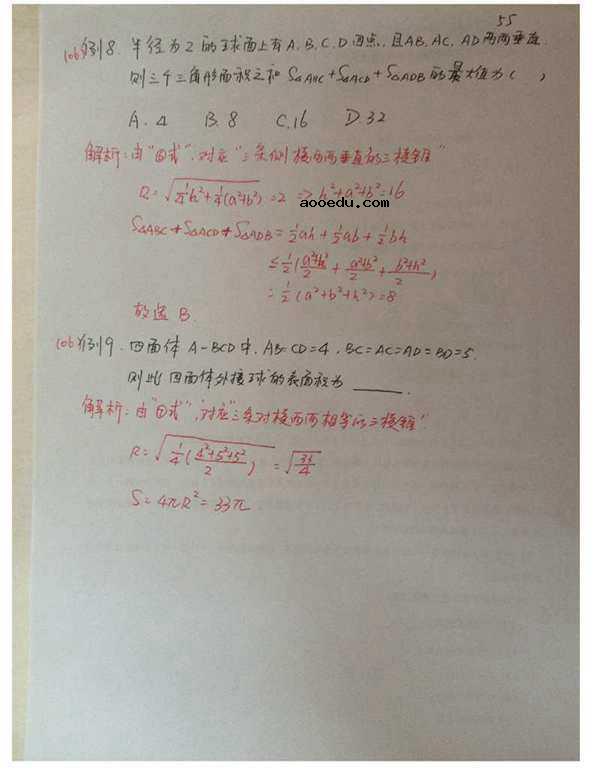 55
(106)例8. 半径为2的球面上有A.B.C.D四点,且AB,AC,AD两两垂直
则三个三角形面积之和 S△ABC+S△ACD+S△ADB的最大值为( )
A. 4 B. 8 C. 16 D. 32
解析:由"回式",对应"三条侧棱两两垂直的三棱锥"
R=√(1/4h²+1/4(a²+b²))=2 ⇒h²+a²+b²=16
aooedu.com
S△ABC+S△ACD+S△ADB=1/2ah+1/2ab+1/2bh
≤1/2(a²+h²/2+a²+b²/2+b²+h²/2)
=1/2(a²+b²+h²)=8
故选B.
(106)例9. 四面体A-BCD中,AB=CD=4,BC=AC=AD=BD=5.
则此四面体外接球的表面积为______.
解析:由"回式",对应"三条对棱两两相等的三棱锥"
R=√(1/4(4²+5²+5²/2))=√(33/4)
S=4πR²=33π